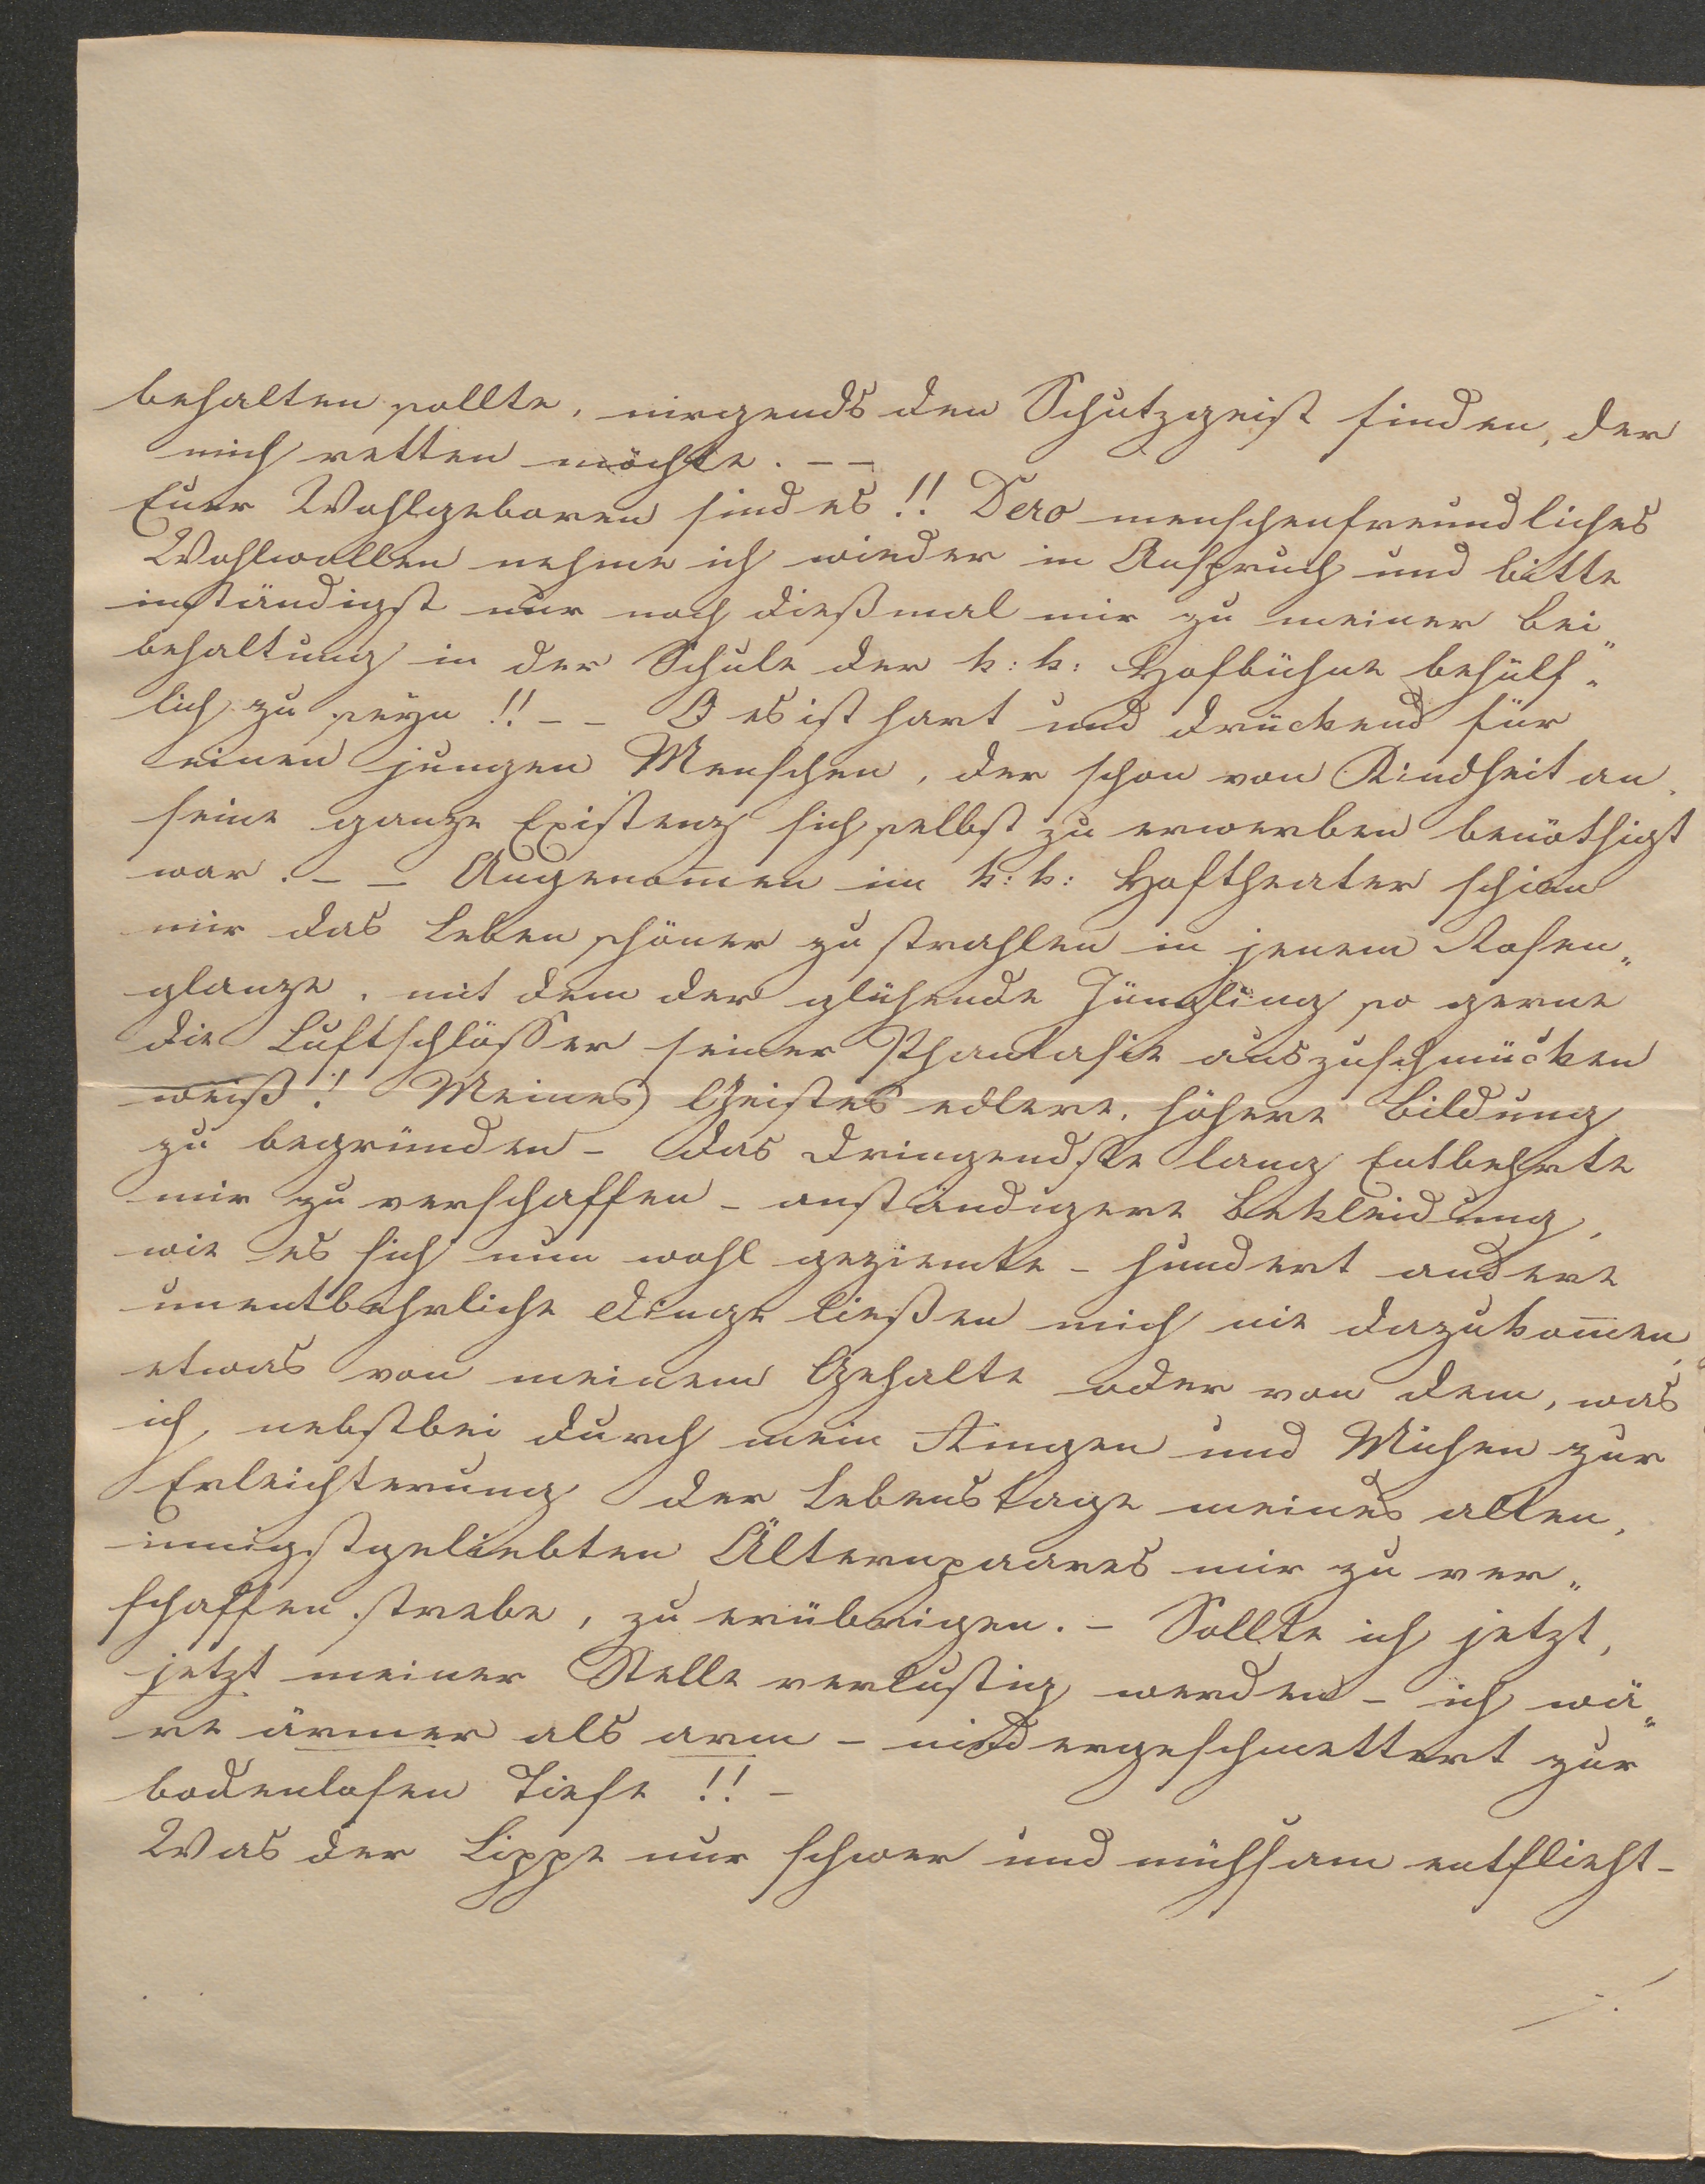 behalten sollte, nirgends den Schutzgeist finden, der
mich retten möchte. – –
Euer Wohlgeboren sind es!! Dero menschenfreundliches
Wohlwollen nehme ich wieder in Anspruch und bitte
inständigst nur noch dießmal mir zu meiner Bei„
behaltung in der Schule der k: k: Hofbühne behülf„
lich zu seyn!! – – O es ist hart und drückend für
einen jungen Menschen, der schon von Kindheit an
seine ganze Existenz sich selbst zu erwerben benöthigt
war. – – Angenom̅en im k: k: Hoftheater schien
mir das Leben schöner zu strahlen in jenem Rosen„
glanze, mit dem der glühende Jüngling so gerne
die Luftschlösser seiner Phantasie auszuschmücken
weiß! Meines Geistes edlere, höhere Bildung
zu begründen – das dringendste lang Entbehrte
mir zu verschaffen – anständigere Bekleidung,
wie es sich nun wohl geziemte – hundert andere
unentbehrliche Dinge ließen mich nie dazukom̅en,
etwas von meinem Gehalte oder von dem, was
ich, nebstbei durch mein Ringen und Mühen zur
Erleichterung der Lebenstage meines alten,
innigstgeliebten Älternpaares mir zu ver„
schaffen strebe, zu erübrigen. – Sollte ich jetzt,
jetzt meiner Stelle verlustig werden – ich wä„
re ärmer als arm – niedergeschmettert zur
bodenlosen Tiefe!! –
Was der Lippe nur schwer und mühsam entflieht –
./.